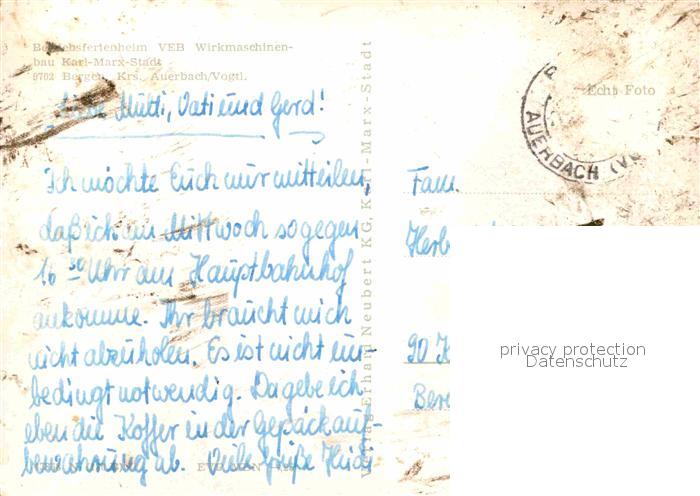 Betriebsferienheim VEB Wirkmaschinen-
bau Karl-Marx-Stadt
9702 Bergen, Krs. Auerbach/Vogtl.
Liebe Mutti, Vati und Gerd!
Ich möchte Euch nur mitteilen,
daß ich am Mittwoch so gegen
16 30 Uhr am Hauptbahnhof
ankomme. Ihr braucht mich
nicht abzuholen. Es ist nicht un-
bedingt notwendig. Da gebe ich
eben die Koffer in der Gepäckauf-
bewahrung ab. Viele Grüße Heidi
Verlag Erhard Neubert KG, Karl-Marx-Stadt
Echt Foto
AUERBACH (V
Fam.
Herb
90 K
Bere
privacy protection
Datenschutz